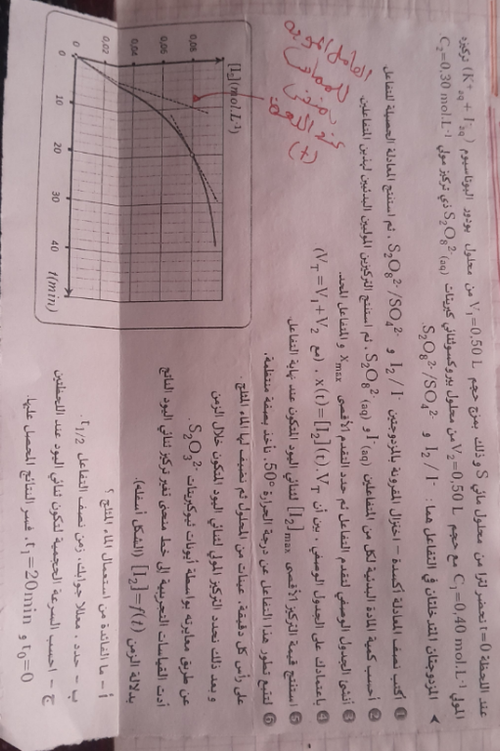 عند اللحظة t=0 نحضر لترا من محلول مائي S وذلك بمزج حجم V₁=0,50 L من محلول يودور البوتاسيوم (K⁺aq + I⁻aq) تركيزه
المولي C₁=0,40 mol.L⁻¹ مع حجم V₂=0,50 L من محلول بيروكسوثنائي كبريتات S₂O₈²⁻(aq) ذي تركيز مولي C₂=0,30 mol.L⁻¹
المزدوجتان المتدخلتان في التفاعل هما: I₂ / I⁻ و S₂O₈²⁻/SO₄²⁻
❶ أكتب نصف المعادلة أكسدة – اختزال المقرونة بالمزدوجتين I₂ / I⁻ و S₂O₈²⁻/SO₄²⁻ ، ثم استنتج المعادلة الحصيلة للتفاعل
❷ أحسب كمية المادة البدئية لكل من المتفاعلين I⁻(aq) و S₂O₈²⁻(aq) ، ثم استنتج التركيزين الموليين البدئيين لهذين المتفاعلين
❸ أنشئ الجدول الوصفي لتقدم التفاعل ثم حدد التقدم الأقصى xmax والمتفاعل المحد.
❹ باعتمادك على الجدول الوصفي ، بين أن x(t)=[I₂](t).VT ، (مع VT=V₁+V₂)
❺ استنتج قيمة التركيز الأقصى [I₂]max لثنائي اليود المتكون عند نهاية التفاعل
❻ لتتبع تطور هذا التفاعل عن درجة الحرارة 50° ، نأخذ بصفة منتظمة،
على رأس كل دقيقة، عينات من المحلول ثم نضيف لها الماء المثلج .
وبعد ذلك نحدد التركيز المولي لثنائي اليود المتكون خلال الزمن
عن طريق معايرته بواسطة أيونات ثيوكبريتات S₂O₃²⁻
أدت القياسات التجريبية إلى خط منحنى تغير تركيز ثنائي اليود الناتج
بدلالة الزمن [I₂]=f(t) (الشكل أسفله).
أ – ما الفائدة من استعمال الماء المثلج ؟
ب – حدد ، معللا جوابك، زمن نصف التفاعل t1/2 .
ج – احسب السرعة الحجمية لتكون ثنائي اليود عند اللحظتين
t₀=0 و t₁=20min . فسر النتائج المحصل عليها.
[I₂](mol.L⁻¹)
0,08
0,06
0,04
0,02
0
0
10
20
30
40
t(min)
المعامل الموجه
للمماس
عند
اللحظة
(t)